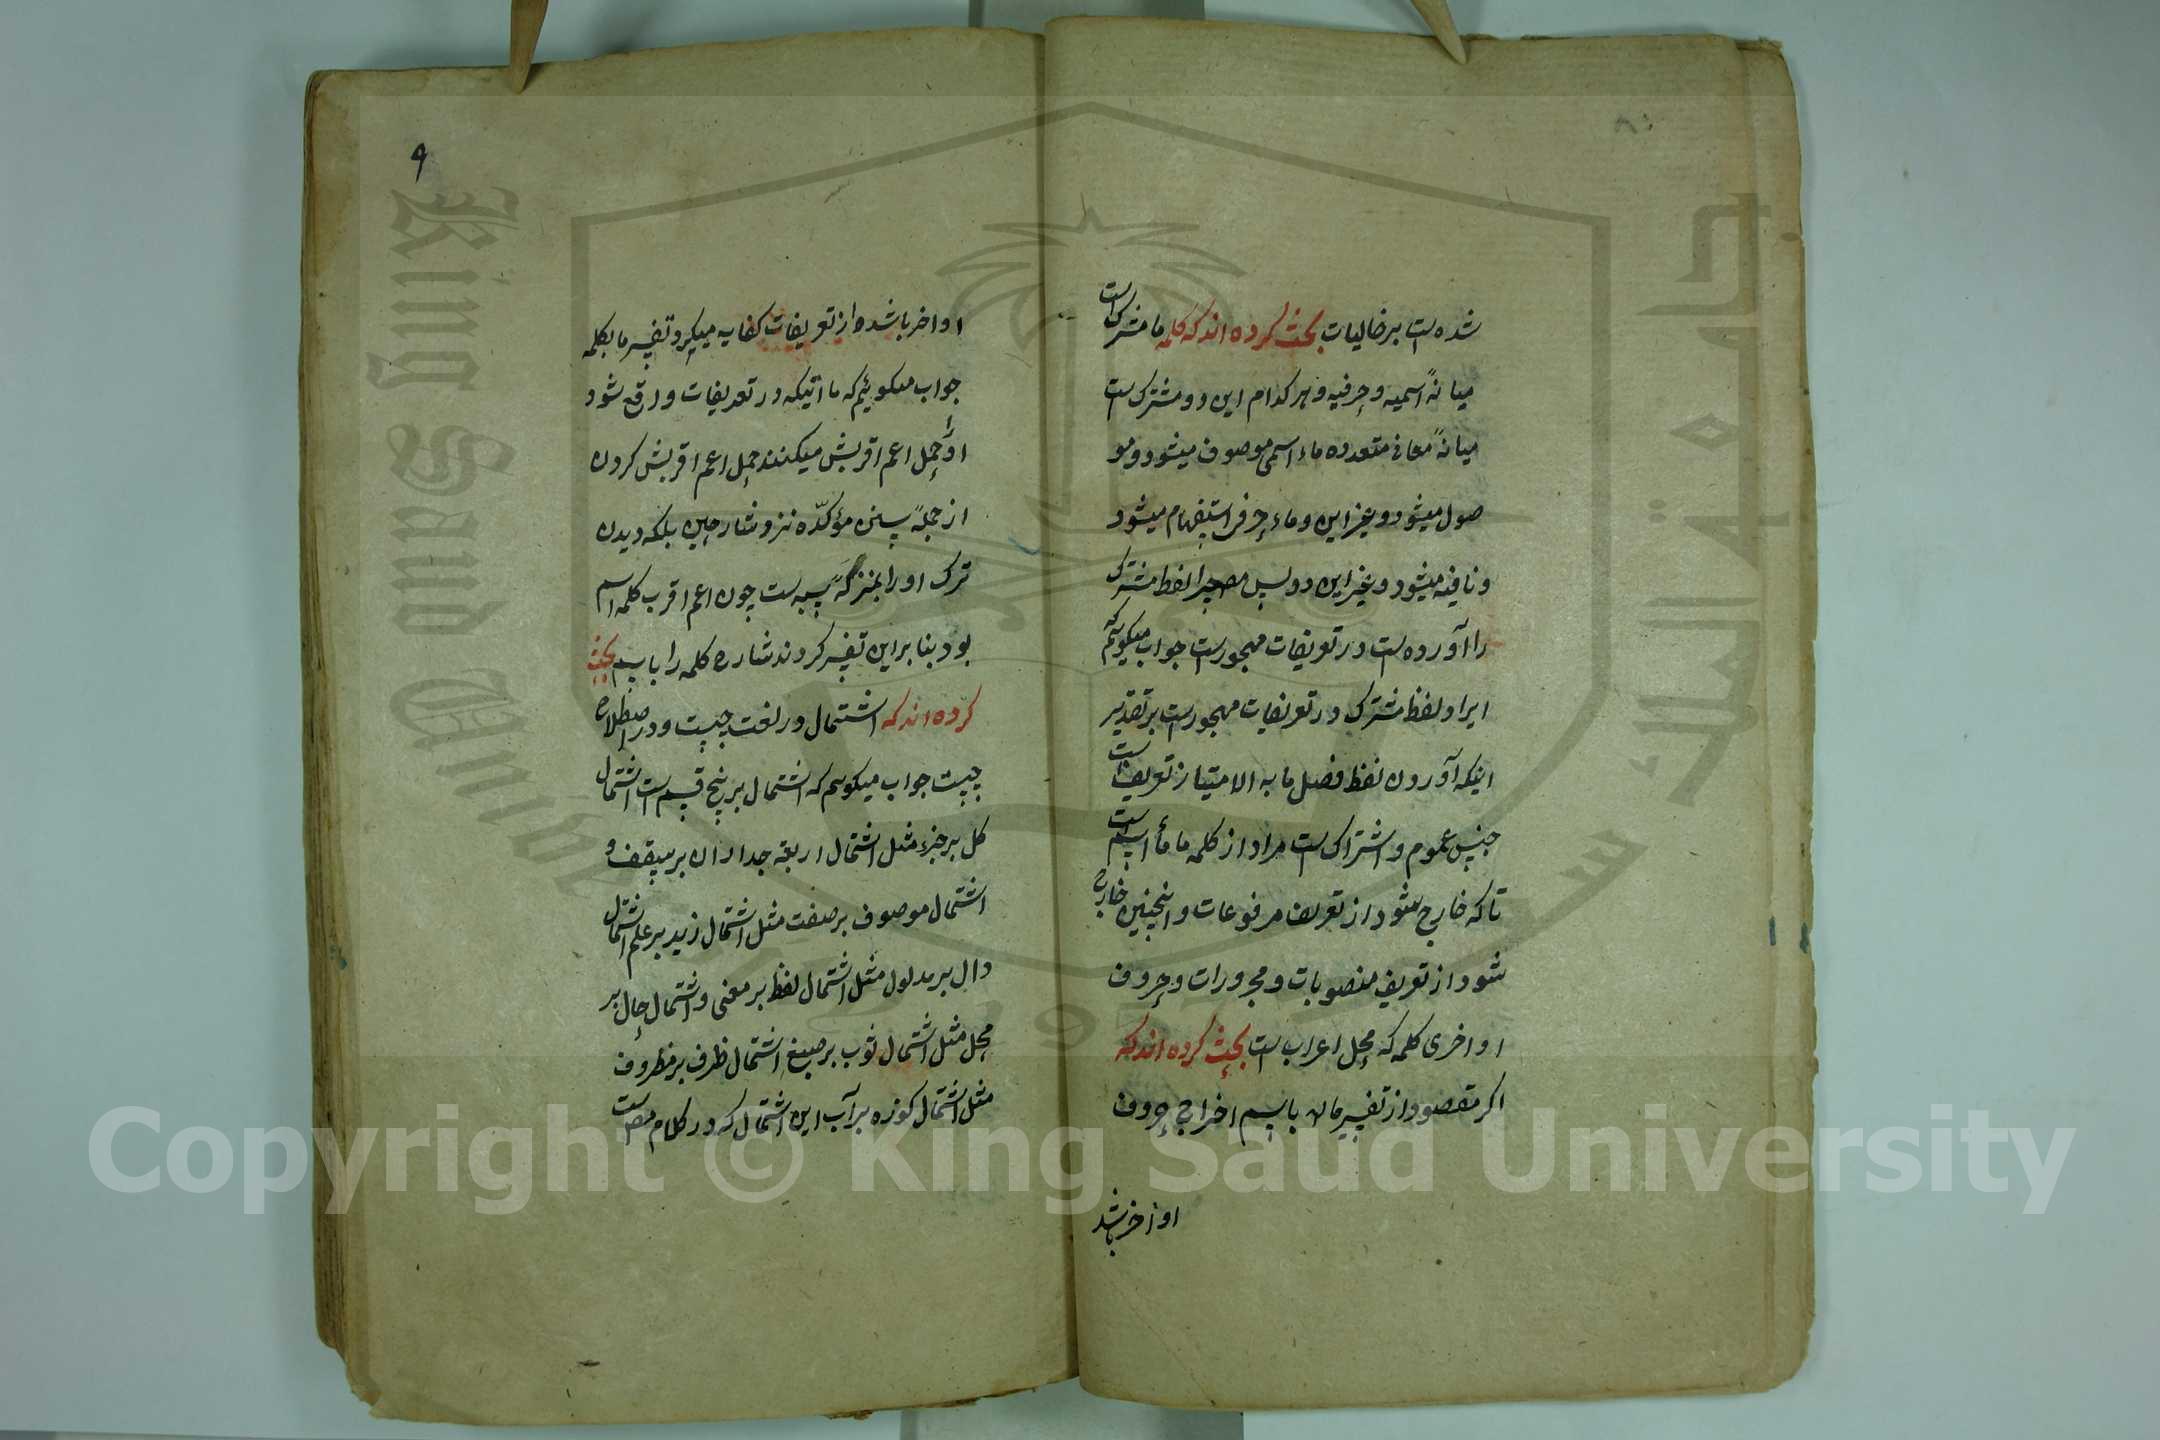 شده است بر خالیات بحث کرده اند که کلمه ما مشترک است
میانهٔ اسمیه و حرفیه و هر کدام این دو مشترک است
میانهٔ معانی متعدده ماء اسمی موصوف میشود و مو
صول میشود و غیر این و ماء حرفی استفهام میشود
و نافیه میشود و غیر این دو پس مص چرا لفظ مشترک
را آورده است در تعریفات مهجورست جواب میکوئیم که
ایراد لفظ مشترک در تعریفات مهجورست بر تقدیر
اینکه آوردن لفظ فصل ما به الامتیاز تعریف است
جنس عموم و اشتراک است مراد از کلمه ما ماء اسم است
تا که خارج شود از تعریف مرفوعات و اینچنین خارج
شود از تعریف منصوبات و مجرورات و حروف
اواخری کلمه که محل اعراب است بحث کرده اند که
اکر مقصود از تفسیر مان با اسم اخراج حروف
اواخر باشد
۹
اواخر باشد از تعریفات کفایه میکیرد تفسیر ما بکلمه
جواب میکوئیم که مائیکه در تعریفات واقع شود
او را حمل اعم اقربش میکنند حمل اعم اقربش کردن
از جملهٔ سنن مؤکّده نزد شارحین بلکه دیدن
ترک او را بمنزلهٔ سبه است چون اعم اقرب کلمه اسم
بود بنا بر این تفسیر کردند شاره کلمه را با اسم بحث
کرده اند که اشتمال در لغت چیست و در اصطلاح
چیست جواب میکوئیم که اشتمال بر پنج قسم است اشتمال
کل بر جزء مثل اشتمال اربعه جداران بر سقف و
اشتمال موصوف بر صفت مثل اشتمال زید بر علم اشتمال
دال بر مدلول مثل اشتمال لفظ بر معنی و اشتمال حال بر
محل مثل اشتمال ثوب بر صبغ اشتمال ظرف بر مظروف
مثل اشتمال کوزه بر آب این اشتمال که در کلام مص است
Copyright © King Saud University
King Saud University
1957